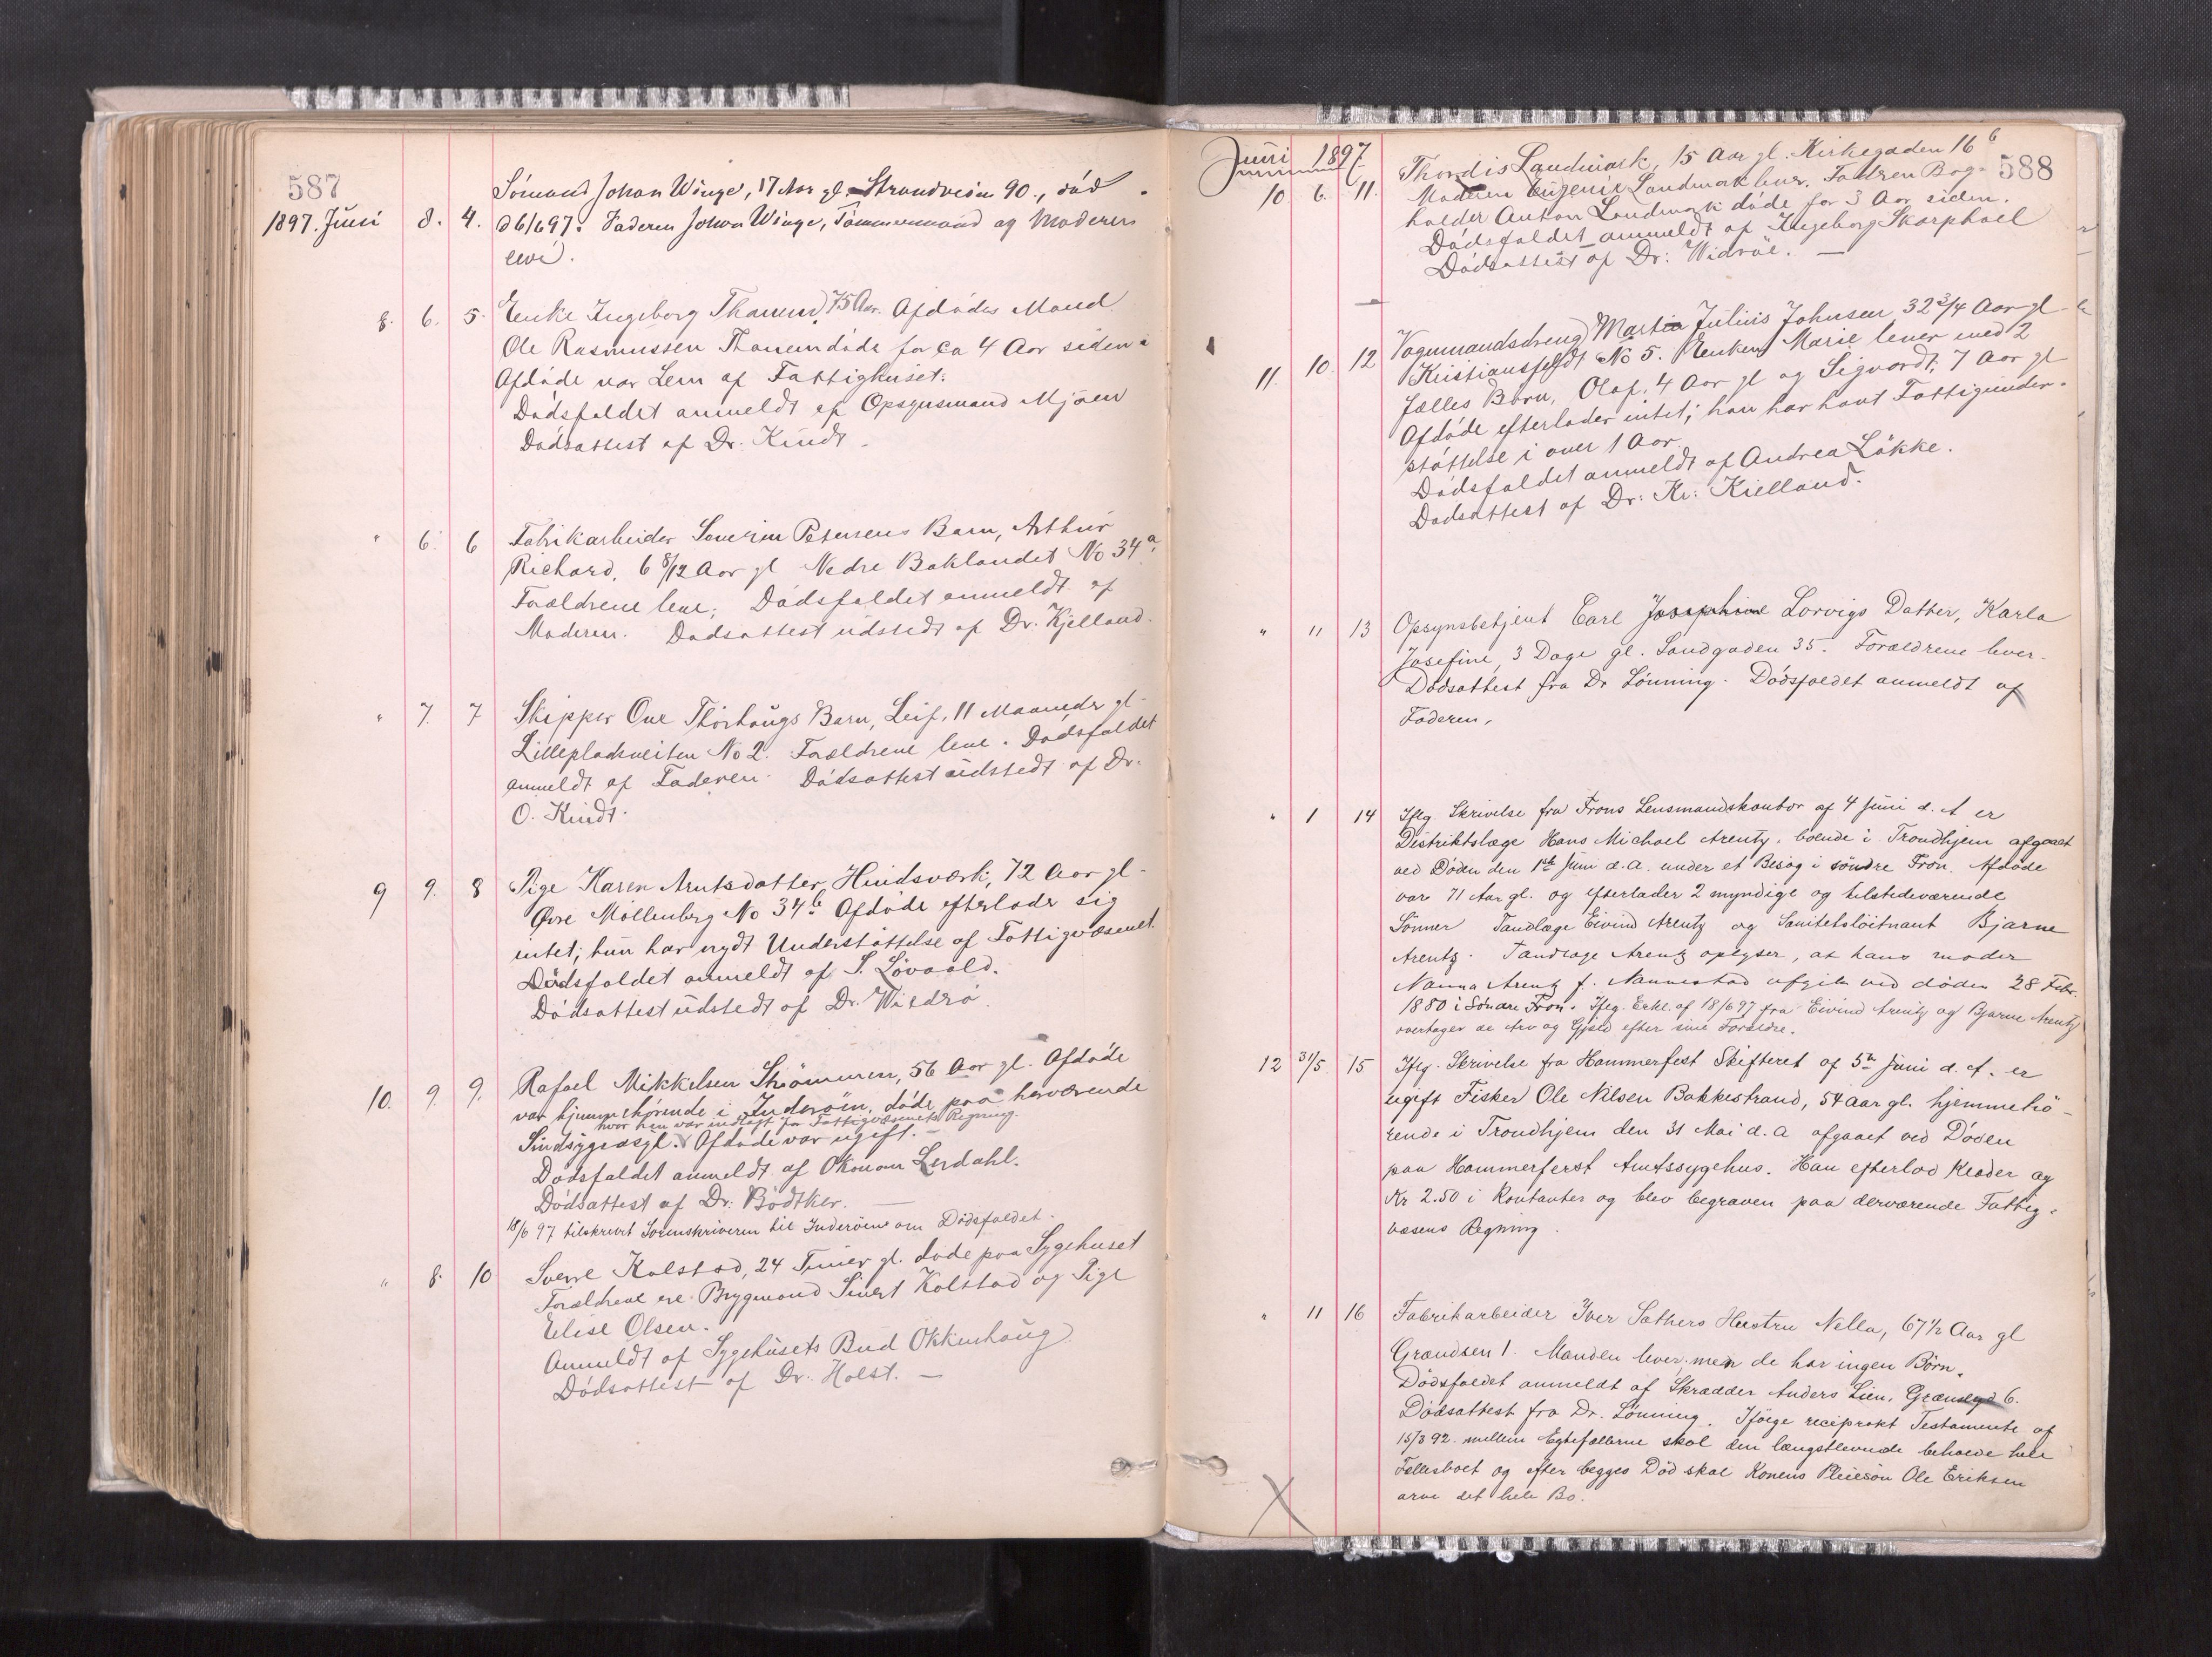 587
1897. Juni 8. 4. Sömand Johan Winge, 17 Aar gl. Strandveien 90., död
d 6/6 97. Faderen Johan Winge, Tömmermand og Moderen
leve.
8. 6. 5. Enke Ingeborg Thanem, 75 Aar. Afdödes Mand
Ole Rasmussen Thanem döde for ca 4 Aar siden.
Afdöde var Lem af Fattighuset.
Dödsfaldet anmeldt af Opsynsmand Mjöen
Dödsattest af Dr. Kindt.
" 6. 6 Fabrikarbeider Severin Petersens Barn, Arthur
Richard, 6 8/12 Aar gl Nedre Baklandet No 34a.
Forældrene leve. Dödsfaldet anmeldt af
Moderen. Dödsattest udstedt af Dr. Kjelland.
" 7. 7 Skipper Ove Thorhaugs Barn, Leif, 11 Maaneder gl.
Lillepladsveiten No 2. Forældrene leve. Dödsfaldet
anmeldt af Faderen. Dödsattest udstedt af Dr.
O. Kindt.
9 9. 8 Pige Karen Arntsdatter Huidsværk, 72 Aar gl.
Øvre Möllenberg No 34b. Afdöde efterlader sig
intet; hun har nydt Understöttelse af Fattigvæsenet.
Dödsfaldet anmeldt af S. Lövaald.
Dödsattest udstedt af Dr. Widrö.
10. 9. 9. Rafael Mikkelsen Strömmen, 56 Aar gl. Afdöde
var hjemmehørende i Inderöen, döde paa herværende
hvor han var indlagt for Fattigvæsenets Regning.
Sindsygeasyl. Afdöde var ugift.
Dödsfaldet anmeldt af Økonom Lerdahl.
Dödsattest af Dr. Bödtker.
18/6 97 tilskrevet Sorenskriveren til Inderöen om Dödsfaldet.
" 8. 10 Sverre Kolstad, 24 Timer gl. döde paa Sygehuset
Forældrene ere Brygmand Sivert Kolstad og Pige
Elise Olsen.
Anmeldt af Sygehusets Bud Okkenhaug
Dödsattest af Dr. Holst.
Juni 1897 588
10. 6. 11. Thordis Landmark, 15 Aar gl. Kirkegaden 16b
Moderen Eugenie Landmark lever. Faderen Bog-
holder Anton Landmark döde for 3 Aar siden.
Dödsfaldet anmeldt af Ingeborg Skarphoel
Dödsattest af Dr: Widröe.
11. 10. 12 Vognmandsdreng Martin Julius Johnsen 32 3/4 Aar gl
Kristiansfeldt No 5. Enken Marie lever med 2
fælles Børn, Olaf, 4 Aar gl og Sigvardt, 7 Aar gl
Afdöde efterlader intet; han har havt Fattigunder-
støttelse i over 1 Aar.
Dödsfaldet anmeldt af Andrea Lökke.
Dödsattest af Dr: Kr: Kielland.
" 11 13 Opsynsbetjent Carl Josephine Lorvigs Datter, Karla
Josefine, 3 Dage gl. Sandgaden 35. Forældrene lever.
Dödsattest fra Dr Lönning. Dödsfaldet anmeldt af
Faderen.
" 1 14 Iflg Skrivelse fra Frons Lensmandskontor af 4 Juni d. A er
Distriktslæge Hans Michael Arentz, boende i Trondhjem afgaaet
ved Döden den 1ste Juni d.A. under et Besøg i söndre Fron. Afdöde
var 71 Aar gl. og efterlader 2 myndige og tilstedeværende
Sönner Tandlæge Eivind Arentz og Sanitetslöitnant Bjarne
Arentz. Tandlæge Arentz oplyser, at hans moder
Nanna Arentz f. Nannestad afgik ved döden 28 Febr.
1880 i Söndre Fron. Iflg. Erkl. af 18/6 97 fra Eivind Arentz og Bjarne Arentz
overtager de Arv og Gjæld efter sine Forældre.
12 31/5. 15 Iflg. Skrivelse fra Hammerfest Skifteret af 5te Juni d. A. er
ugift Fisker Ole Nilsen Bakkestrand, 54 Aar gl. hjemmehö-
rende i Trondhjem den 31 Mai d. A afgaaet ved Döden
paa Hammerfest Amtssygehus. Han efterlod Klæder og
Kr 2.50 i Kontanter og blev begraven paa derværende Fattig-
væsens Regning.
" 11 16 Fabrikarbeider Iver Sæthers Hustru Nella, 67 1/2 Aar gl
Grændsen 1. Manden lever, men de har ingen Börn.
Dödsfaldet anmeldt af Skrædder Anders Lien, Grændsen 6.
Dödsattest fra Dr. Lönning. Ifölge reciprokt Testamente af
15/3 92. mellem Egtefællerne skal den længstlevende beholde hele
Fællesboet og efter begges Död skal Konens Pleiesön Ole Eriksen
arve det hele Bo.
X